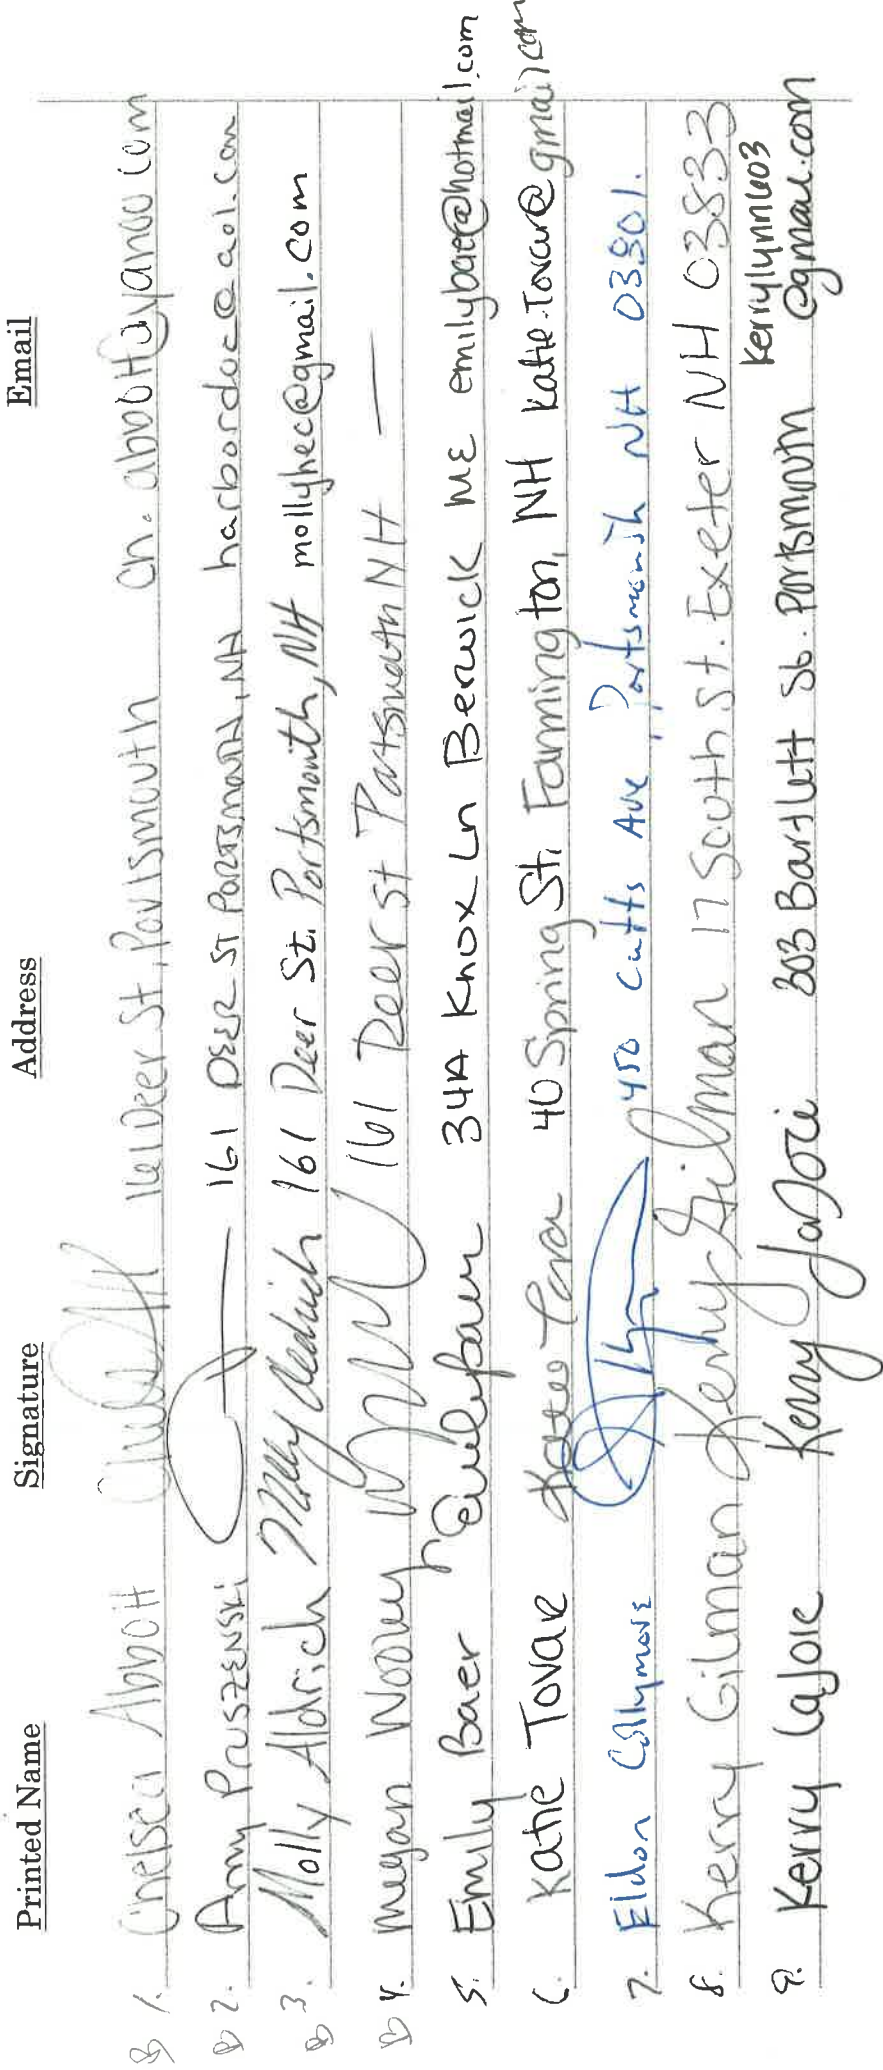 Printed Name Signature Address Email
1. Chelsea Abbott 161 Deer St, Portsmouth
2. Amy Pruszenski 161 DEER ST PORTSMOUTH, NH harbordoc@aol.com
3. Molly Aldrich Molly Aldrich 161 Deer St. Portsmouth, NH mollyhec@gmail.com
4. Megan 161 Deer st Portsmouth NH —
5. Emily Baer Emily Baer 34A Knox Ln Berwick ME emilybaer@hotmail.com
6. Katie Tovar Katie Tovar 40 Spring St. Farmington, NH katie.tovar@gmail.com
7. Eldon Collymore 450 Cutts Ave, Portsmouth NH 03801.
8. Kerry Gilman Kerry Gilman 17 South St. Exeter NH 03833
9. Kerry LaJoie Kerry LaJoie 303 Bartlett St. Portsmouth kerrylynn603
@gmail.com